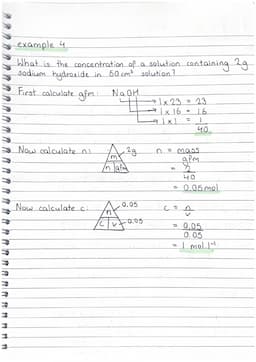 example 4
What is the concentration of a solution containing 2g
sodium hydroxide in 50cm³ solution?
First calculate gfm: NaOH
→ 1 x 23 = 23
→ 1 x 16 = 16
→ 1 x 1 = 1
40
Now calculate n: m n gfm 2g n = mass
gfm
= 2
40
= 0.05 mol
Now calculate c: n c v 0.05 0.05 c = n
v
= 0.05
0.05
= 1 mol l⁻¹